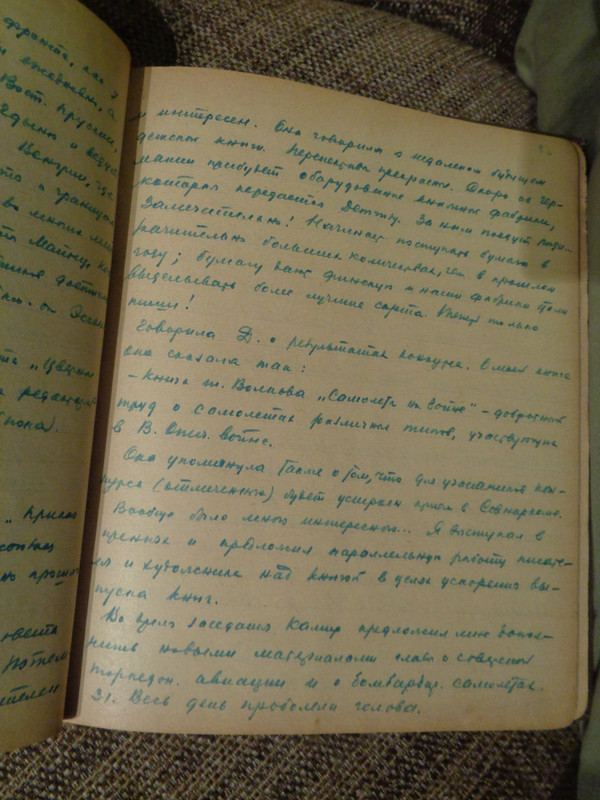 фронта, как я
ежедневн.
Вост. Пруссии,
Венгрии, где
о границы
во многих
Майну,
"Цветн
редакции
"Присло
прошл
совета
Потом
83
и интересен. Она говорила о недалеком будущем
детской книги. Перспективы прекрасны. Скоро из Гер-
мании прибудет оборудование книжной фабрики,
которая передается Детгизу. За ним поедут люди.
Замечательно! Начинает поступать бумага в
значительно больших количествах, чем в прошлом
году; бумагу дают финскую и наши фабрики стали
выделывать более лучшие сорта. Только
пиши!
Говорила Д. о результатах конкурса. О моей книге
она сказала так:
– Книга т. Волкова „Самолеты на войне" – добротный
труд о самолетах различных типов, участвующих
в В. Отеч. войне.
Она упомянула также о том, что для участников кон-
курса (отмеченных) будет устроен прием в Совнаркоме.
Вообще было много интересного... Я выступал в
прениях и предложил параллельную работу писате-
ля и художника над книгой в целях ускорения вы-
пуска книг.
Во время заседания Камир предложил мне допол-
нить новыми материалами главы о советской
торпедон. авиации и о бомбардир. самолетах.
31. Весь день проболела голова.